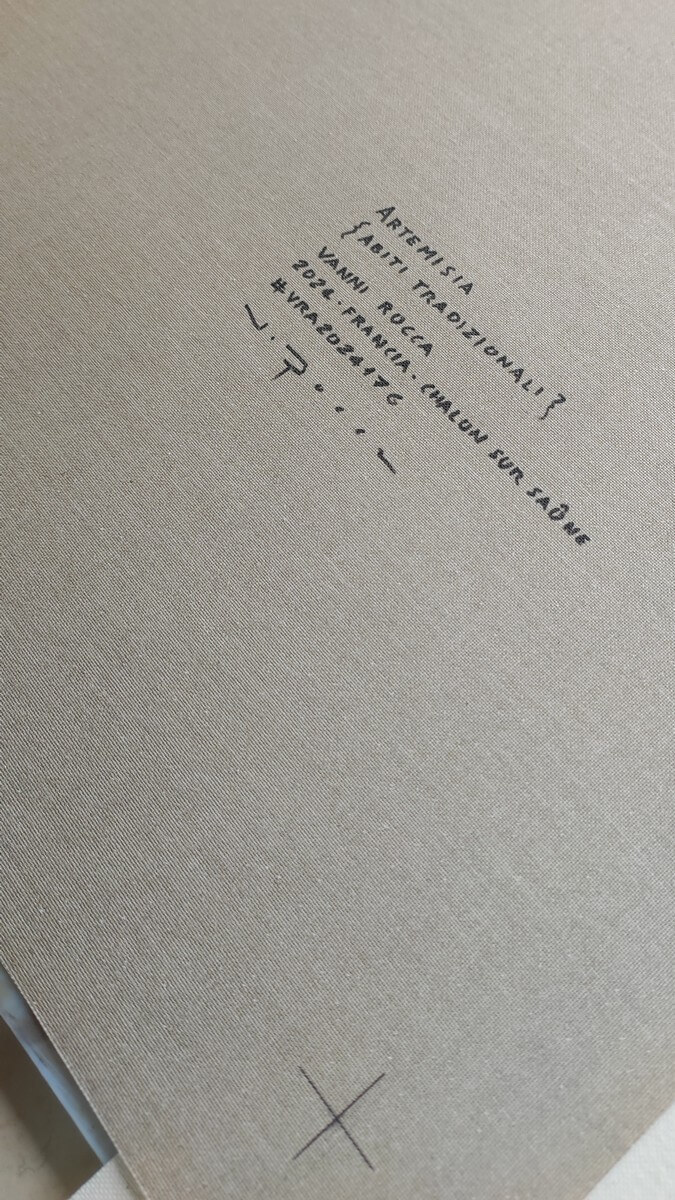 ARTEMISIA
{ABITI TRADIZIONALI}
VANNI ROCCA
2024. FRANCIA. CHALON SUR SAÔNE
#VRA2024176
V. R....